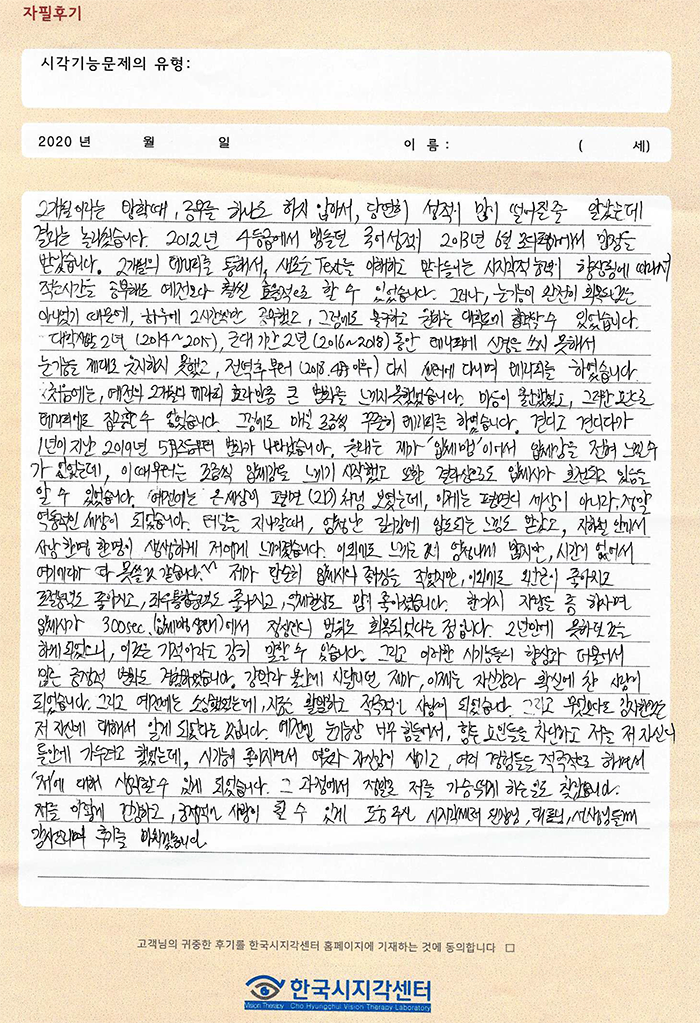 자필후기
시각기능문제의 유형:
2020 년 월 일 이 름 : ( 세)
2개월이라는 방학때, 공부를 하나도 하지 않아서, 당연히 성적이 많이 떨어질줄 알았는데
결과는 놀라웠습니다. 2012년 4등급에서 맴돌던 국어성적이 2013년 6월 모의평가에서 만점을
받았습니다. 2개월의 테라피를 통해서, 새로운 Text를 이해하고 받아들이는 시지각적 능력이 향상됨에 따라서
적은시간을 공부해도 예전보다 훨씬 효율적으로 할 수 있었습니다. 그러나, 눈기능이 완전히 회복된것은
아니었기 때문에, 하루에 2시간씩만 공부했고, 그럼에도 불구하고 원하는 대학교에 합격할수 있었습니다.
대학생활 2년 (2014~2015), 군대 기간 2년 (2016~2018) 동안 테라피에 신경을 쓰지 못해서
눈기능을 제대로 유지하지 못했고, 전역후부터 (2018.4월 이후) 다시 센터에 다니며 테라피를 하였습니다.
처음에는, 예전의 2개월의 테라피 효과만큼 큰 변화를 느끼지 못했었습니다. 마음이 불안했었고, 그러한 요소로
테라피에도 집중할수 없었습니다. 그럼에도 매일 조금씩 꾸준히 테라피를 하였습니다. 견디고 견디다가
1년이 지난 2019년 5월초부터 변화가 나타났습니다. 원래는 제가 '입체맹'이어서 입체감을 전혀 느낄수
가 없었는데, 이때부터는 조금씩 입체감을 느끼기 시작했고 또한 결과상으로도 입체시가 호전되고 있음을
알 수 있었습니다. 예전에는 온세상이 평면(2D)처럼 보였는데, 이제는 평면의 세상이 아니라, 정말
역동적인 세상이 되었습니다. 터널을 지나갈때, 엄청난 깊이감에 압도되는 느낌도 받았고, 지하철 안에서
사람 한명 한명이 생생하게 저에게 느껴졌습니다. 이외에도 느끼는 것이 엄청나게 많지만, 시간이 없어서
여기에다가 다 못쓸것 같습니다.^^ 제가 단순히 입체시의 증강을 적었지만, 이외에도 외안근이 좋아지고
조절능력도 좋아지고, 좌우통합능력도 좋아지고, 억제현상도 많이 좋아졌습니다. 한가지 자랑을 좀 하자면
입체시가 300sec.(입체맹상태)에서 정상인의 범위로 회복되었다는 점입니다. 2년만에 못하던것을
하게 되었으니, 이것은 기적이라고 감히 말할 수 있습니다. 그리고 이러한 시기능들의 향상과 더불어서
많은 긍정적 변화도 경험하였습니다. 강박과 불안에 시달리던 제가, 이제는 자신감과 확신에 찬 사람이
되었습니다. 그리고 예전에는 소심했었는데, 지금은 활발하고 적극적인 사람이 되었습니다. 그리고 무엇보다도 감사한것은
저 자신에 대해서 알게 되었다는 것입니다. 예전엔 눈기능상 너무 힘들어서, 힘든 요인들을 차단하고 저를 저 자신의
틀안에 가두려고 했었는데, 시기능이 좋아지면서 여유와 자신감이 생기고, 여러 경험들을 적극적으로 하면서
'저'에 대해 생각할수 있게 되었습니다. 그 과정에서 정말로 저를 가슴뛰게 하는일도 찾았습니다.
저를 이렇게 건강하고, 긍정적인 사람이 될 수 있게 도와 주신 시지각센터 원장님, 대표님, 선생님들께
감사드리며 후기를 마치겠습니다.
고객님의 귀중한 후기를 한국시지각센터 홈페이지에 기재하는 것에 동의합니다 □
한국시지각센터
Vision Therapy Cho Hyungchul Vision Therapy Laboratory